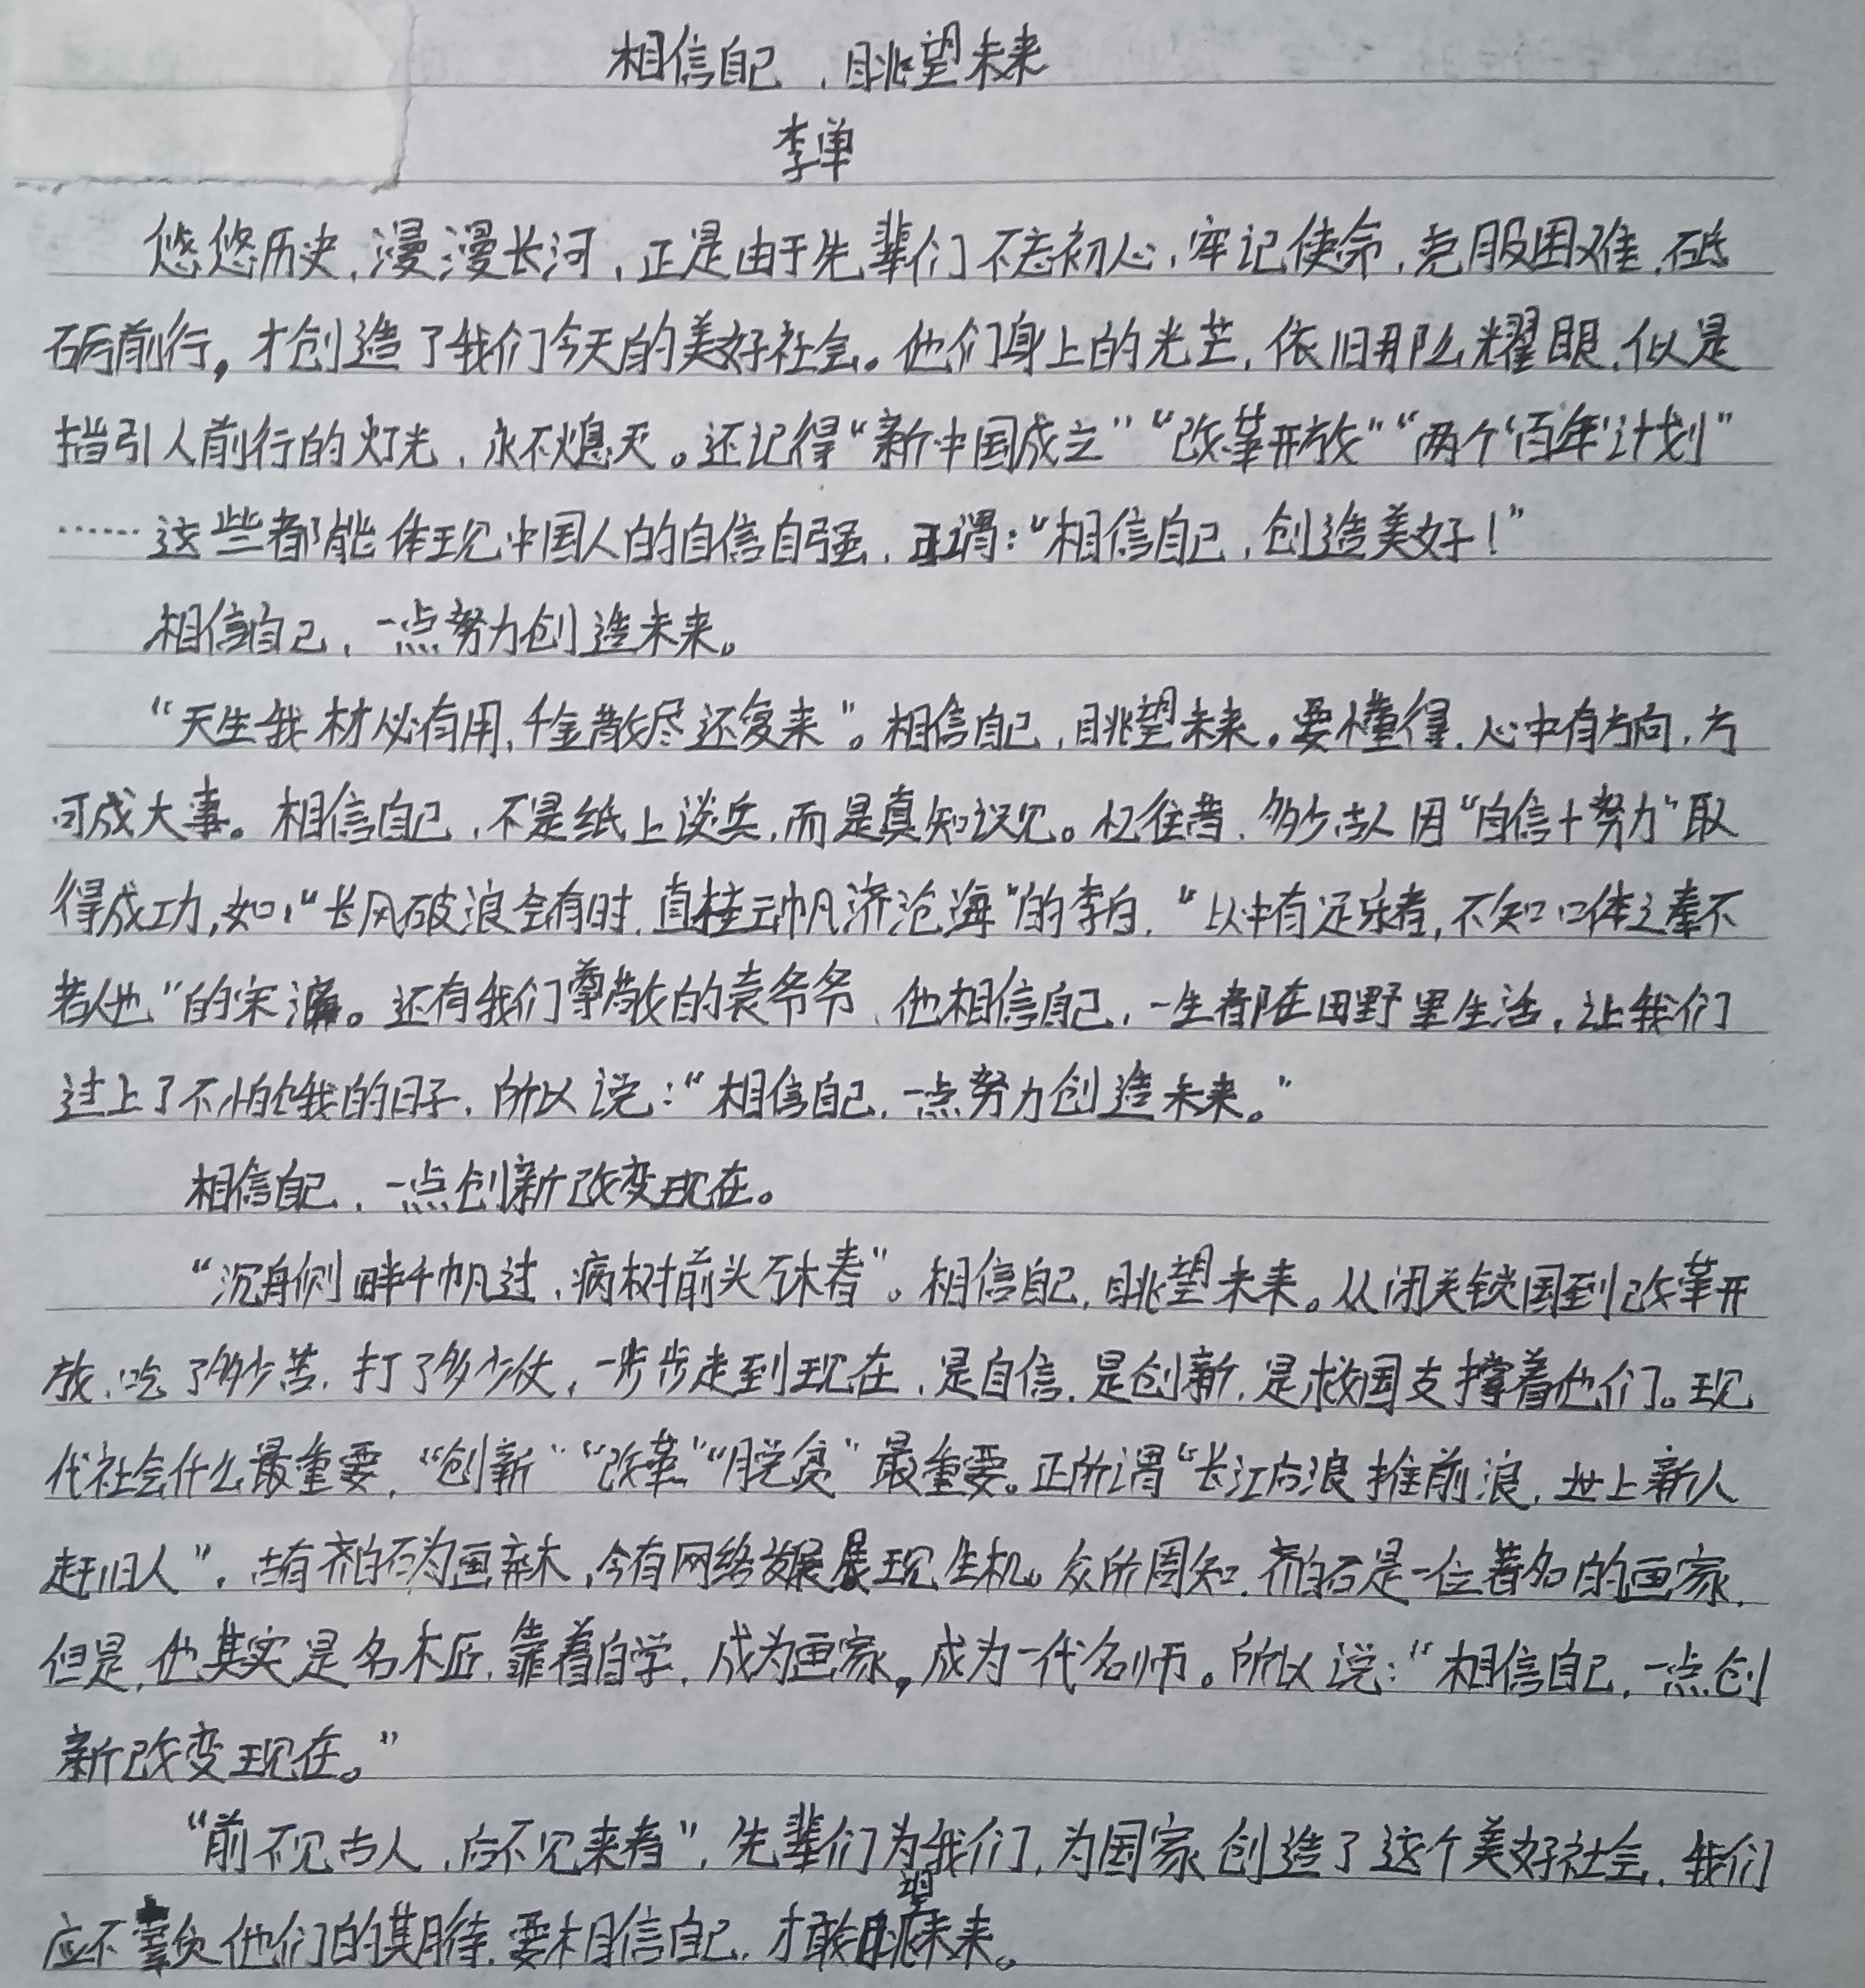 相信自己，眺望未来
李单
悠悠历史，漫漫长河，正是由于先辈们不忘初心，牢记使命，克服困难，砥
砺前行，才创造了我们今天的美好社会。他们身上的光芒，依旧那么耀眼，似是
指引人前行的灯光，永不熄灭。还记得“新中国成立”“改革开放”“两个‘百年’计划”
……这些都能体现中国人的自信自强，正谓：“相信自己，创造美好！”
相信自己，一点努力创造未来。
“天生我材必有用，千金散尽还复来”。相信自己，眺望未来。要懂得，心中有方向，方
可成大事。相信自己，不是纸上谈兵，而是真知识见。忆往昔，多少古人因“自信+努力”取
得成功，如：“长风破浪会有时，直挂云帆济沧海”的李白，“以中有足乐者，不知口体之奉不
若人也”的宋濂。还有我们尊敬的袁爷爷，他相信自己，一生都在田野里生活，让我们
过上了不怕饿的日子，所以说：“相信自己，一点努力创造未来。”
相信自己，一点创新改变现在。
“沉舟侧畔千帆过，病树前头万木春”。相信自己，眺望未来。从闭关锁国到改革开
放，吃了多少苦，打了多少仗，一步步走到现在，是自信，是创新，是救国支撑着他们。现
代社会什么最重要，“创新”“改革”“脱贫”最重要。正所谓“长江后浪推前浪，世上新人
赶旧人”，古有齐白石为画弃木，今有网络发展展现生机。众所周知，齐白石是一位著名的画家，
但是，他其实是名木匠，靠着自学，成为画家，成为一代名师。所以说：“相信自己，一点创
新改变现在。”
“前不见古人，后不见来者”，先辈们为我们，为国家创造了这个美好社会，我们
应不辜负他们的期待，要相信自己，才敢眺望未来。